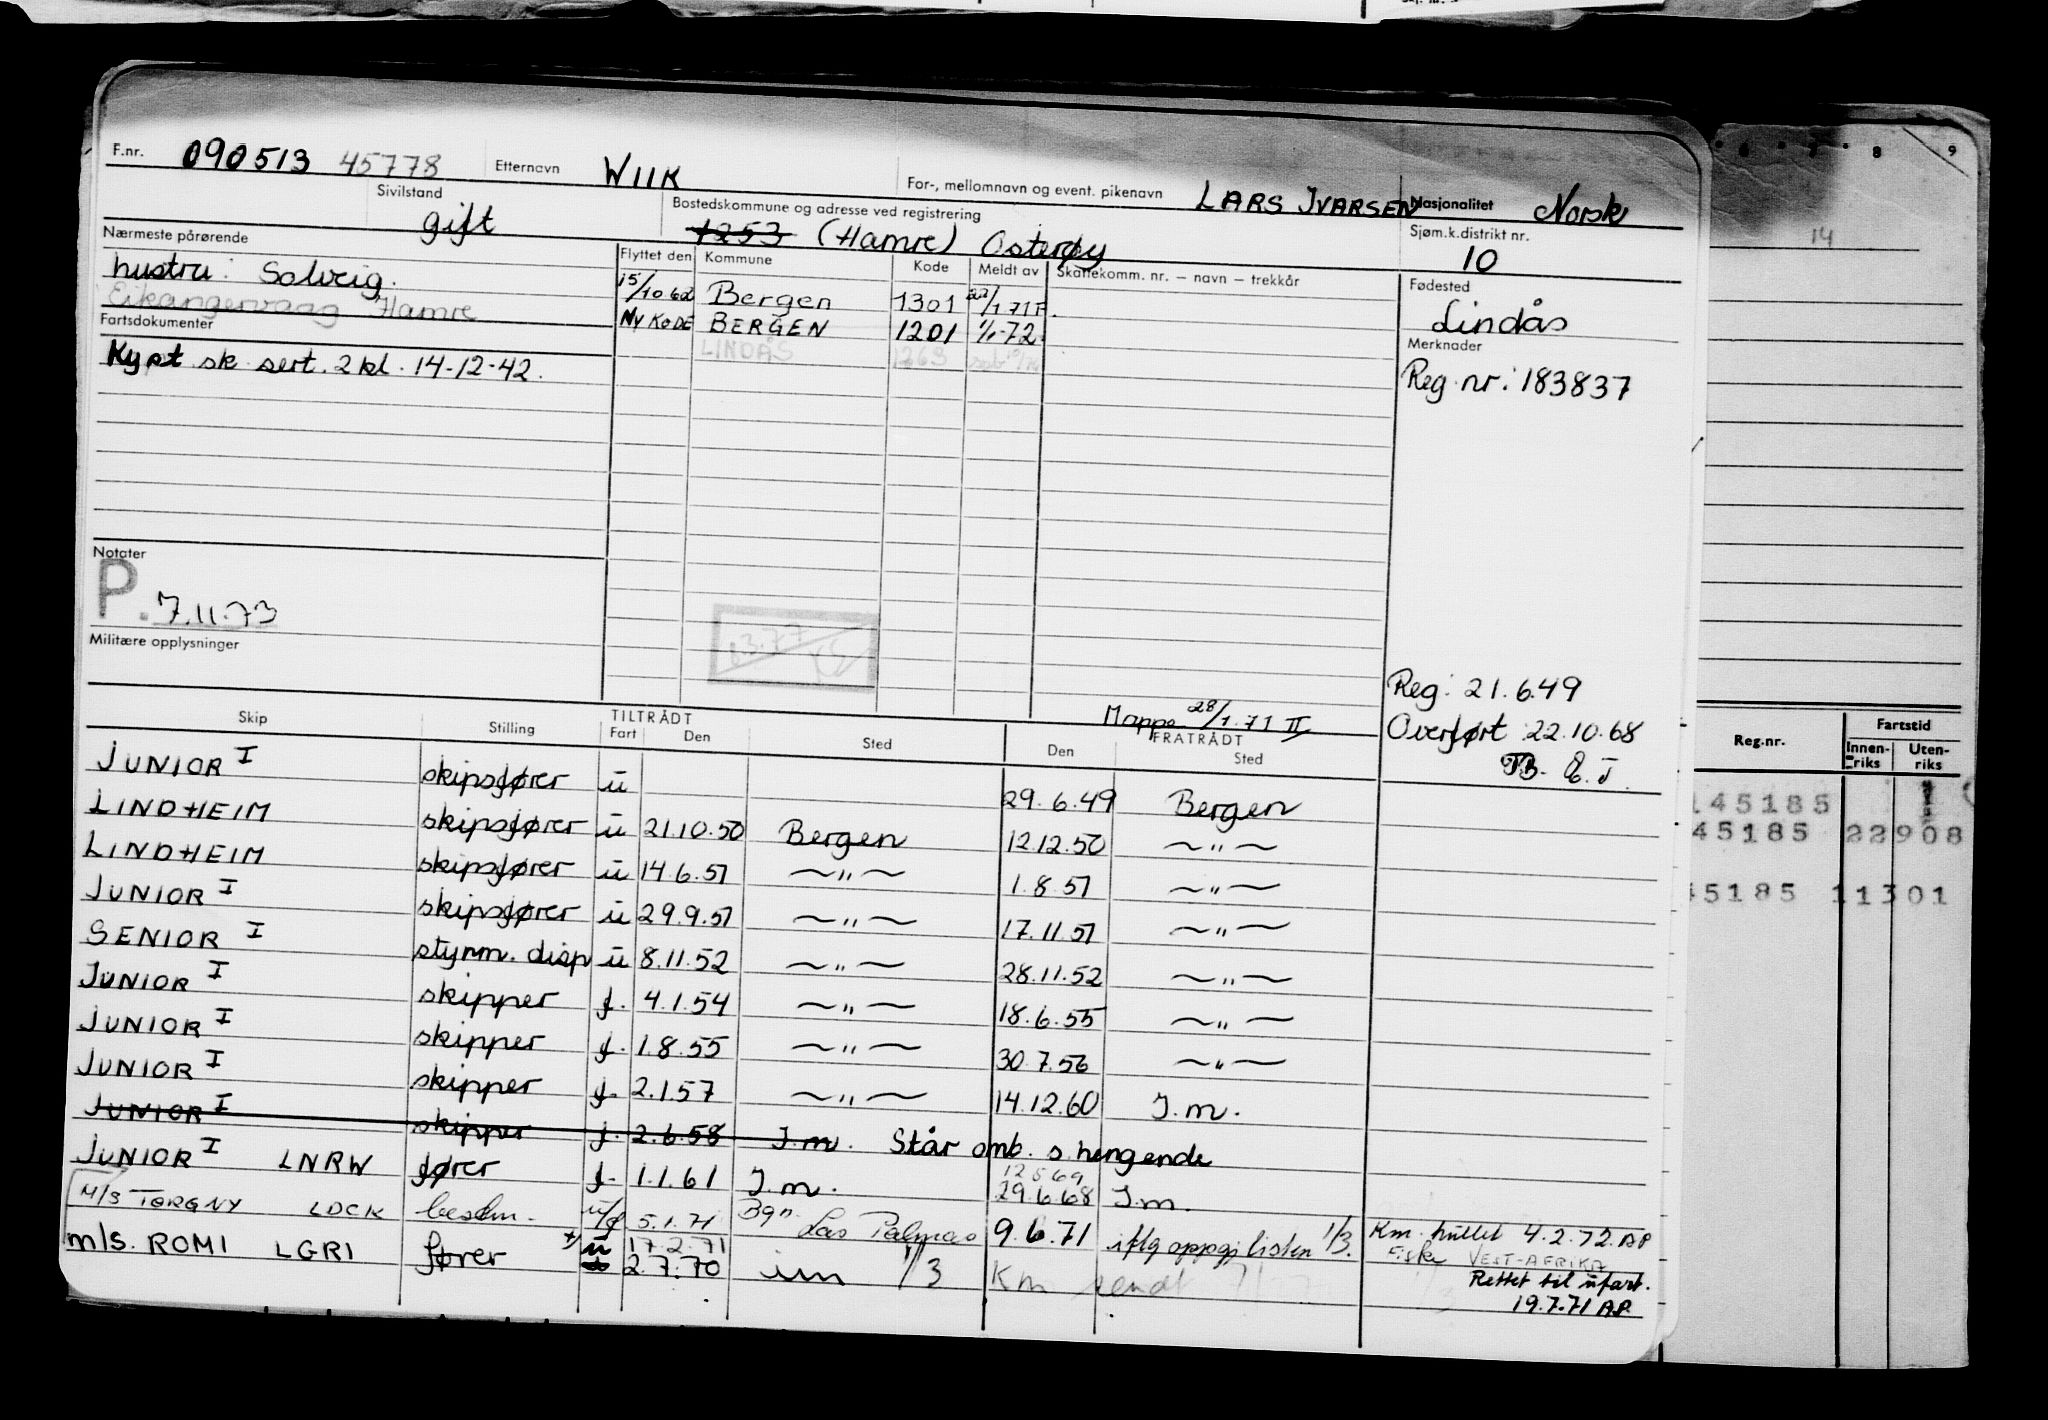 F.nr. 090513 45778 Etternavn WIIK For-, mellomnavn og event. pikenavn LARS IVARSEN Nasjonalitet Norsk
Sivilstand gift Bostedskommune og adresse ved registrering 1253 (Hamre) Osterøy Sjøm.k.distrikt nr. 10
Nærmeste pårørende Flyttet den Kommune Kode Meldt av Skattekomm. nr. – navn – trekkår Fødested
hustru: Solveig. 15/10 62 Bergen 1301 22/1 71 F. Lindås
Eikangervaag Hamre
Fartsdokumenter NY KODE BERGEN 1201 1/1-72 Merknader
LINDÅS 1263
Kyst sk. sert. 2 kl. 14-12-42. Reg. nr: 183837
Notater
P. 7.11.73
Militære opplysninger
Reg: 21.6.49
Mappe 28/1.71 II Overført 22.10.68
Skip Stilling TILTRÅDT Fart Den Sted FRATRÅDT Den Sted
JUNIOR I skipsfører u 29.6.49 Bergen
LINDHEIM skipsfører u 21.10.50 Bergen 12.12.50 ~"~
LINDHEIM skipsfører u 14.6.51 ~"~ 1.8.51 ~"~
JUNIOR I skipsfører u 29.9.51 ~"~ 17.11.51 ~"~
SENIOR I styrm. disp u 8.11.52 ~"~ 28.11.52 ~"~
JUNIOR I skipper f. 4.1.54 ~"~ 18.6.55 ~"~
JUNIOR I skipper f. 1.8.55 ~"~ 30.7.56 ~"~
JUNIOR I skipper f. 2.1.57 ~"~ 14.12.60 I.m.
JUNIOR I skipper f. 2.6.58 I.m. Står omb. s.hengende
JUNIOR I LNRW fører f. 1.1.61 I.m. 29.6.68 I.m.
12 5 69
M/S TORGNY LDCK bestm. u/f 5.1.71 Bgn
17.2.71 Las Palmas 9.6.71 iflg oppgj listen 1/3. Km. hullet 4.2.72. AP
Fiske VEST-AFRIKA
m/s. ROMI LGRI fører u 2.7.70 im 1/3 Km sendt Rettet til ufart.
19.7.71 AP.
8 9
14
Reg.nr. Fartstid
Innen-riks Uten-riks
145185
45185 22908
45185 11301